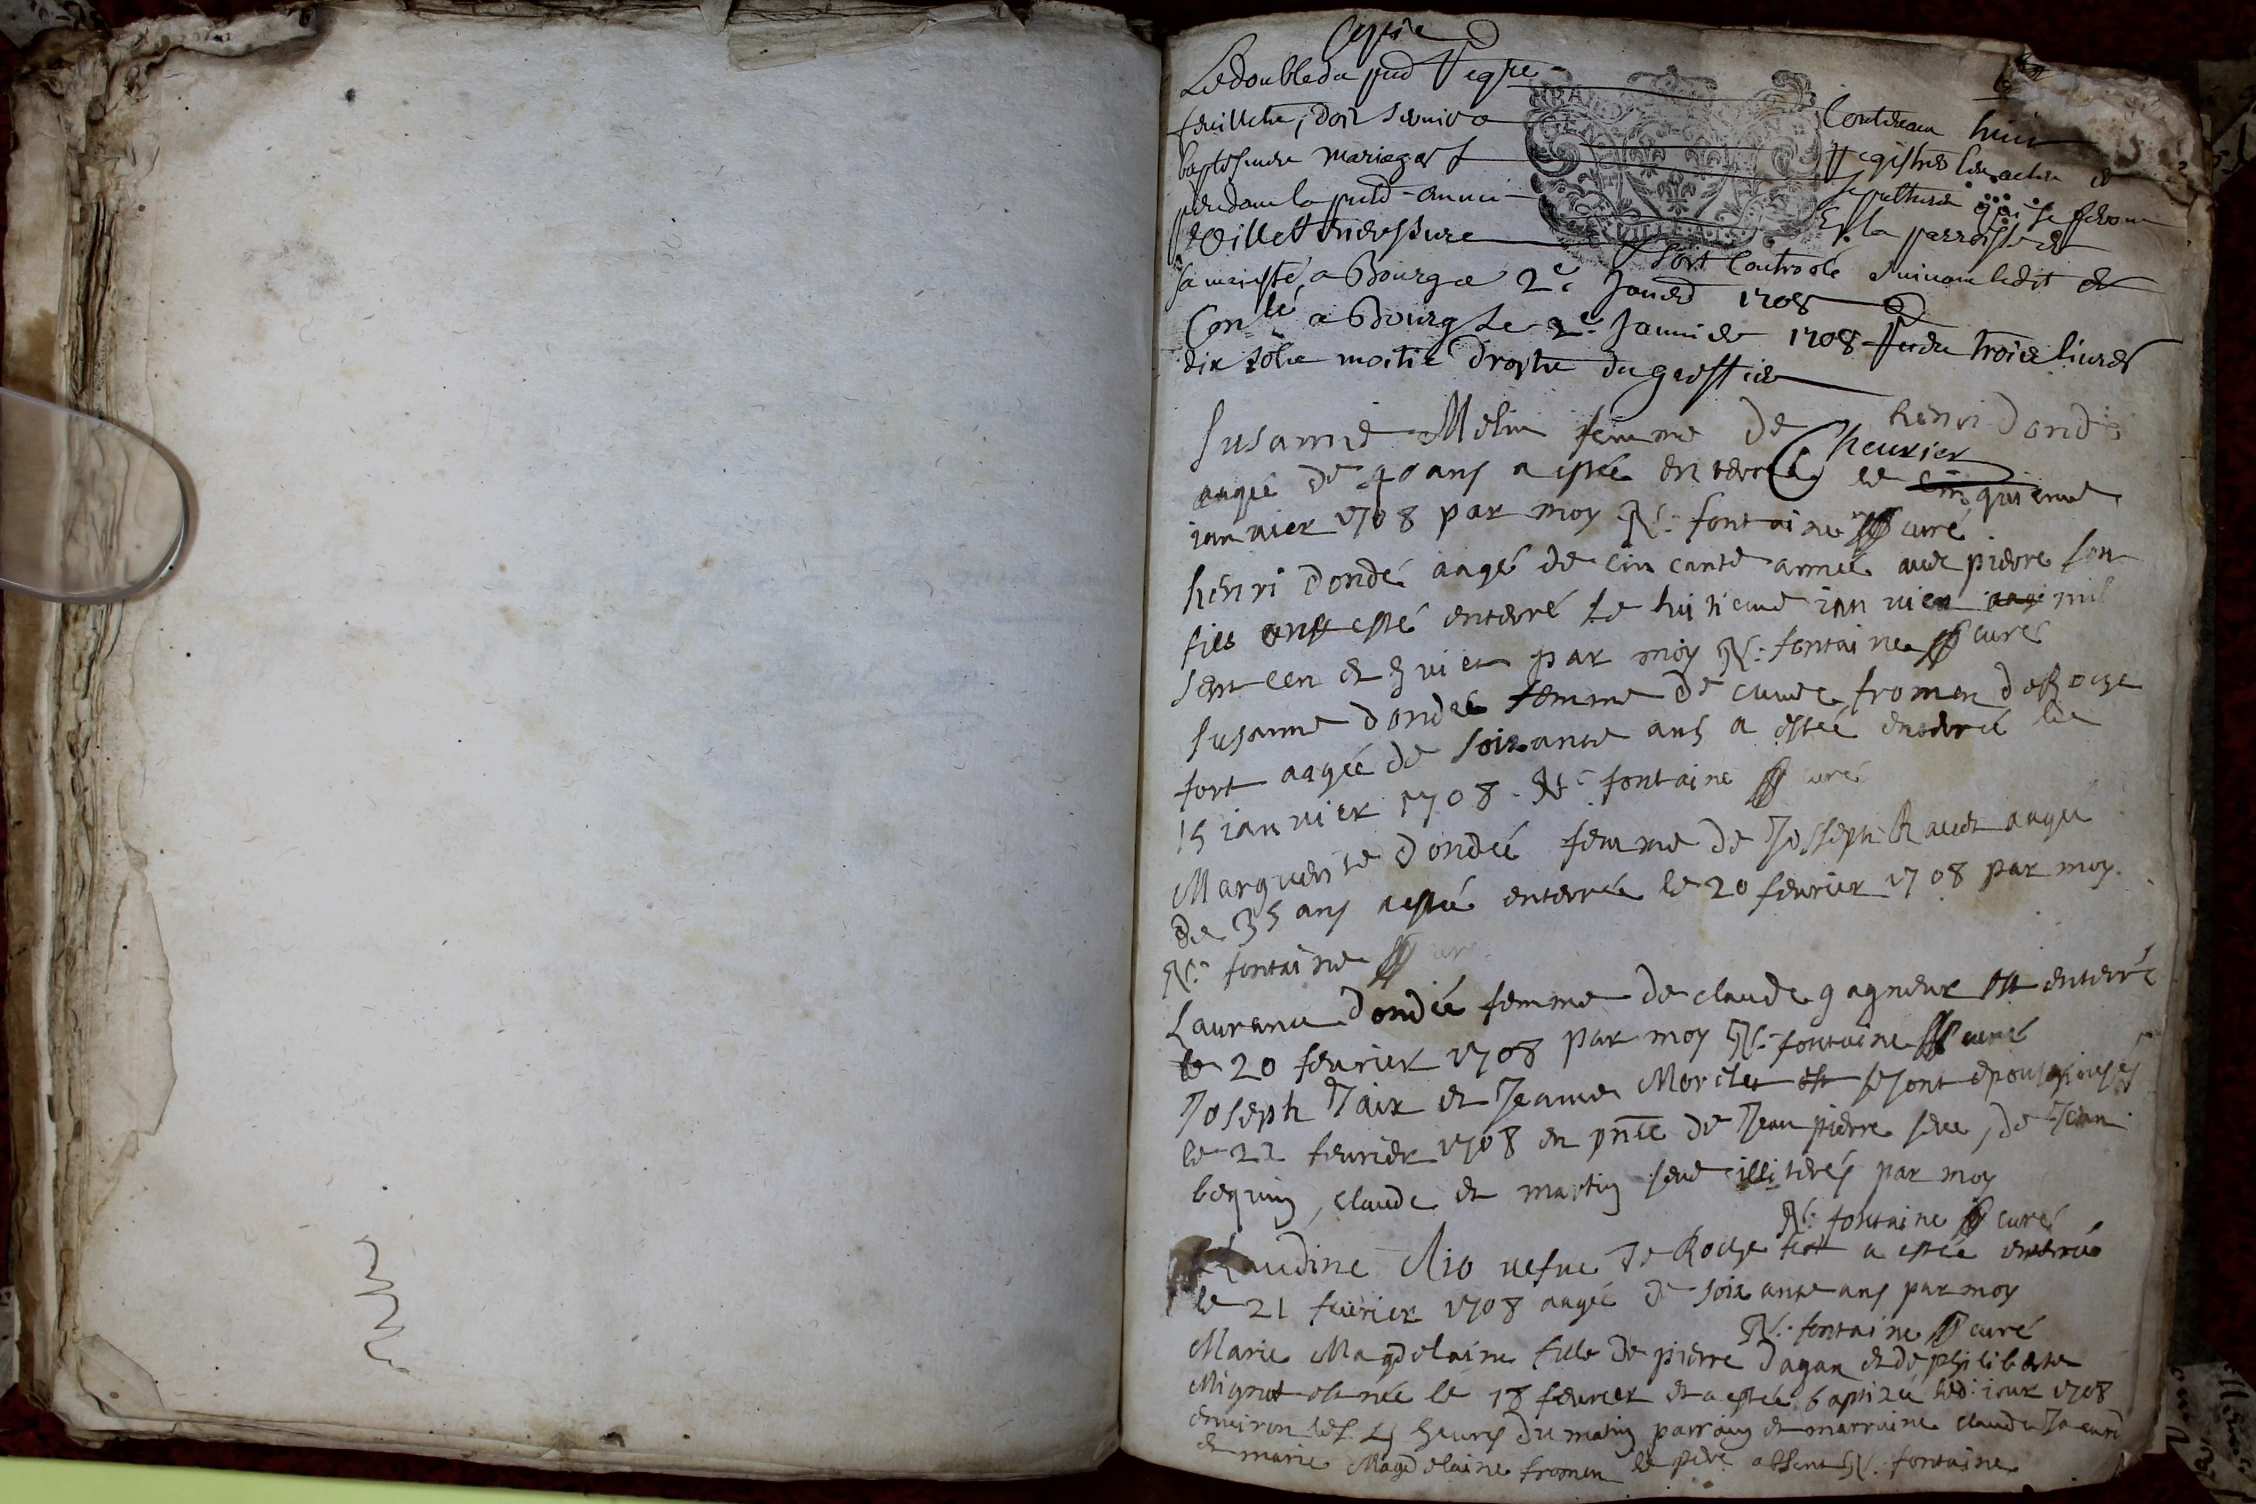 Le double du pnt Regre
Contenan huict
feuillets, doit servir a
Registrer les actes de
baptesmes mariages &
sepultures qui se feront
pendant la pnte année
En la parroisse de
Villettendressure
soit Controlé suivant ledit de
sa majesté, a Bourg ce 2e Janer 1708
Conlé a Bourg le 2e Janvier 1708 trois livres
dix sols moitié Droits du greffier
Susanne Melin femme de henri Dondé
Cheurier
aagée de 40 ans a estée enterrée le cinquieme
ianvier 1708 par moy N: fontaine curé
henri Dondé aagé de cincante année avec pierre son
fils ont esté enterré le huitieme ianvier mil
sept cen et huict par moy N: fontaine curé
Susanne Dondée femme de claude fromen de Roche
fort aagée de soixante ans a estée enterrée le
15 ianvier 1708 N: fontaine curé
Marguerite Dondée femme de Josseph Ravet aagée
de 35 ans a estée enterrée le 20 fevrier 1708 par moy
N: fontaine curé
Laurance Dondée femme de claude gagneur est enterré
le 20 fevrier 1708 par moy N: fontaine curé
Joseph Taix et Jeanne Morelet se sont epousés
le 21 fevrier 1708 en pnce de Jean pierre seve, de Jean
bequin, claude et martin seve illiterés par moy
N: fontaine curé
Claudine Rio vefve de Roche fort a estée enterrée
le 21 fevrier 1708 aagée de soixante ans par moy
N: fontaine curé
Marie Magdelaine fille de pierre Dagan et de philiberte
Mignot est née le 18 fevrier et a estée baptizée led: iour 1708
environ les 4 heures du matin parrain et marraine claude
et marie Magdelaine fromen le pere absent N: fontaine